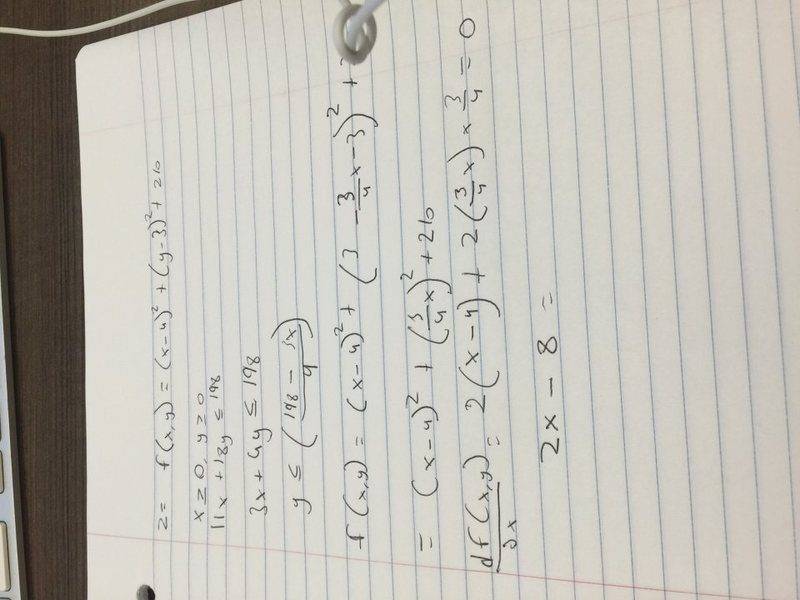 z = f(x,y) = (x-4)² + (y-3)² + 210
x ≥ 0, y ≥ 0
11x + 18y ≤ 198
3x + 4y ≤ 198
y ≤ (198 - 3x / 4)
f(x,y) = (x-4)² + (3 - 3/4 x - 3)² +
= (x-4)² + (3/4 x)² + 210
df(x,y)/dx = 2(x-4) + 2(3/4 x) × 3/4 = 0
2x - 8 =